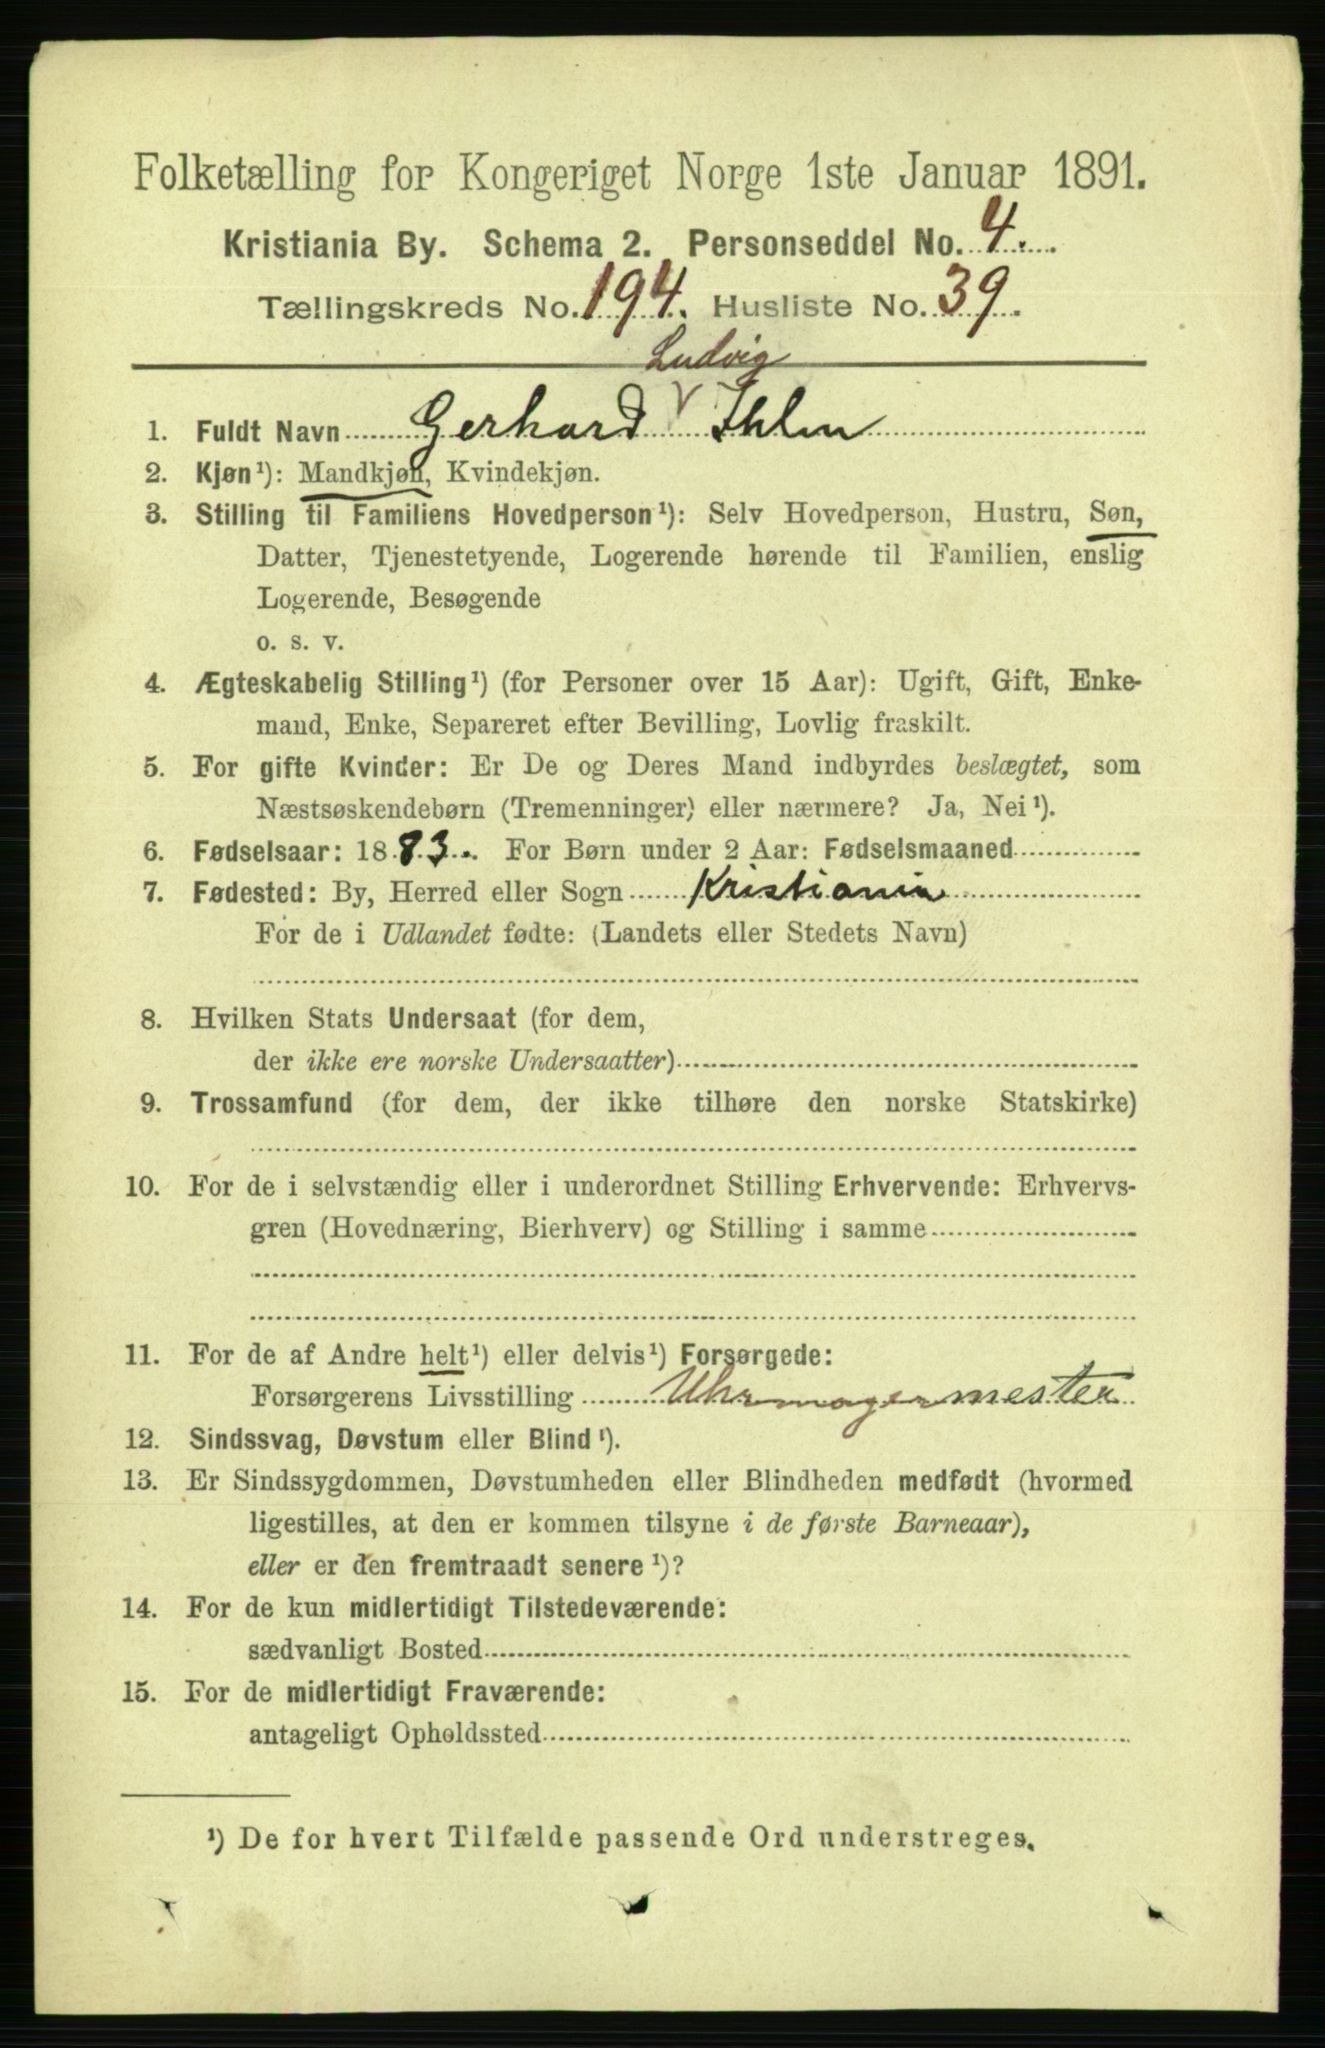 Folketælling for Kongeriget Norge 1ste Januar 1891.
Kristiania By. Schema 2. Personseddel No. 4.
Tællingskreds No. 194. Husliste No. 39.
Ludvig
1. Fuldt Navn Gerhard V Ihlen
2. Kjøn¹): Mandkjøn, Kvindekjøn.
3. Stilling til Familiens Hovedperson¹): Selv Hovedperson, Hustru, Søn,
Datter, Tjenestetyende, Logerende hørende til Familien, enslig
Logerende, Besøgende
o. s. v.
4. Ægteskabelig Stilling¹) (for Personer over 15 Aar): Ugift, Gift, Enke-
mand, Enke, Separeret efter Bevilling, Lovlig fraskilt.
5. For gifte Kvinder: Er De og Deres Mand indbyrdes beslægtet, som
Næstsøskendebørn (Tremenninger) eller nærmere? Ja, Nei¹).
6. Fødselsaar: 1883. For Børn under 2 Aar: Fødselsmaaned
7. Fødested: By, Herred eller Sogn Kristiania
For de i Udlandet fødte: (Landets eller Stedets Navn)
8. Hvilken Stats Undersaat (for dem,
der ikke ere norske Undersaatter)
9. Trossamfund (for dem, der ikke tilhøre den norske Statskirke)
10. For de i selvstændig eller i underordnet Stilling Erhvervende: Erhvervs-
gren (Hovednæring, Bierhverv) og Stilling i samme
11. For de af Andre helt¹) eller delvis¹) Forsørgede:
Forsørgerens Livsstilling Uhrmagermester
12. Sindssvag, Døvstum eller Blind¹).
13. Er Sindssygdommen, Døvstumheden eller Blindheden medfødt (hvormed
ligestilles, at den er kommen tilsyne i de første Barneaar),
eller er den fremtraadt senere¹)?
14. For de kun midlertidigt Tilstedeværende:
sædvanligt Bosted
15. For de midlertidigt Fraværende:
antageligt Opholdssted
¹) De for hvert Tilfælde passende Ord understreges.